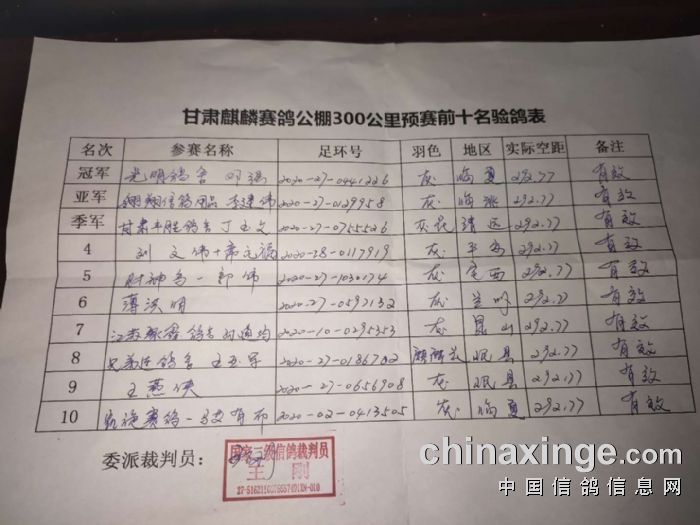 甘肃麒麟赛鸽公棚300公里预赛前十名验鸽表
名次 参赛名称 足环号 羽色 地区 实际空距 备注
冠军 光明鸽舍 2020-27-0441226 灰 临夏 292.77 有效
亚军 翱翔信鸽用品 李建伟 2020-27-0129958 灰 临洮 292.77 有效
季军 甘肃丰胜鸽舍 丁玉文 2020-27-0755526 灰花 靖远 292.77 有效
4 刘文伟+常元福 2020-28-0117919 灰 平安 292.77 有效
5 财神岛-郭伟 2020-27-1030174 灰 定西 292.77 有效
6 薄洪明 2020-27-0592132 灰 兰州 292.77 有效
7 江苏 鸽舍 2020-10-0295353 灰 昆山 292.77 有效
8 兄弟连鸽舍 王玉军 2020-27-0186702 麒麟花 岷县 292.77 有效
9 王燕侠 2020-27-0656908 灰 岷县 292.77 有效
10 凯旋赛鸽-马艾有布 2020-02-0413505 灰 临夏 292.77 有效
委派裁判员：
国家三级信鸽裁判员
王 刚
chinaxinge.com
中国信鸽信息网